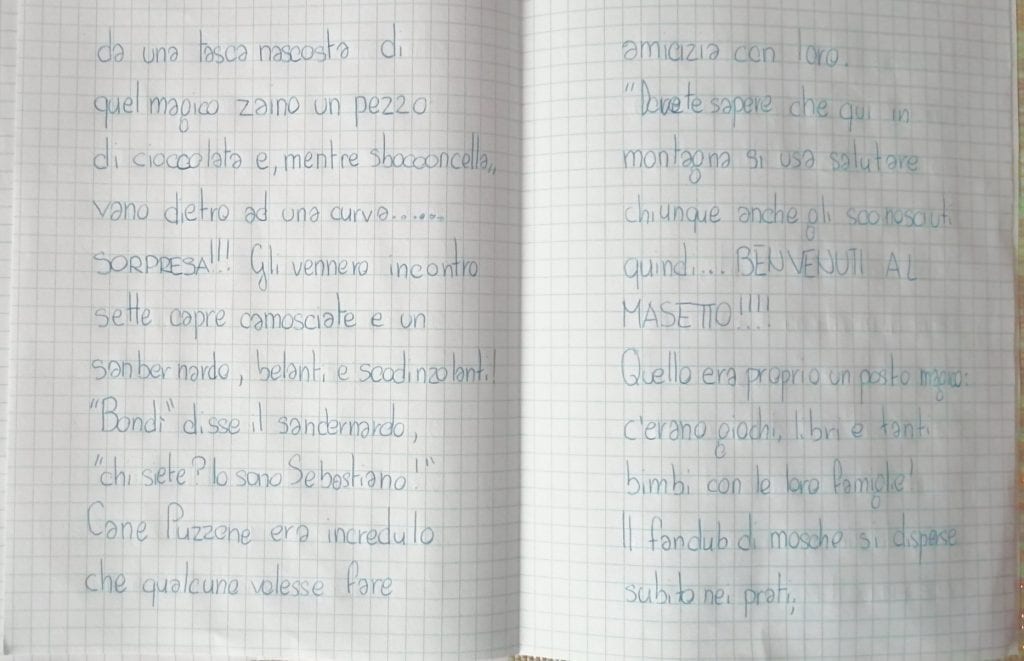 da una tasca nascosta di
quel magico zaino un pezzo
di cioccolata e, mentre sbocconcella,,
vano dietro ad una curva.......
SORPRESA!!! Gli vennero incontro
sette capre camosciate e un
sanbernardo, belanti e scodinzolanti!
"Bondì" disse il sandernardo,
"chi siete? Io sono Sebastiano!"
Cane Puzzone era incredulo
che qualcuno volesse fare
amicizia con loro.
"Dovete sapere che qui in
montagna si usa salutare
chiunque anche gli sconosciuti
quindi.... BENVENUTI AL
MASETTO!!!!
Quello era proprio un posto magico:
c'erano giochi, libri e tanti
bimbi con le loro famiglie!
Il fandub di mosche si disperse
subito nei prati,